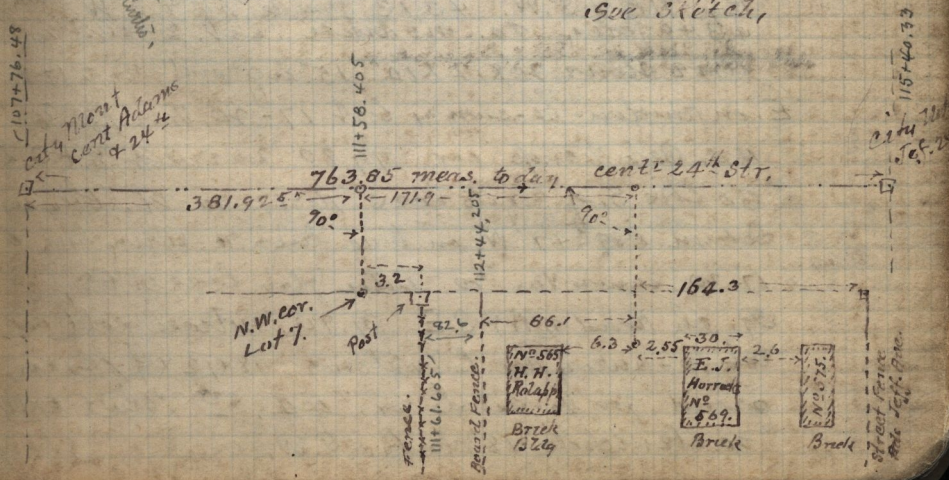 See Sketch,
107+76.48
City Mont
cent Adams
& 24th
111+58.405
115+40.33
City
763.85 meas. today
centr 24th Str.
381.925
171.9
90°
90°
112+44,205
3.2
164.3
N.W. cor.
Lot 7.
Post
82.6
86.1
6.3
2.55
30.
2.6
Nº 565
H. H.
Rolapp
E. J.
Nº
569.
Nº 575.
Fence.
111+61.605
Board Fence.
Brick
Bldg
Brick
Brick
Street Fence
Jeff. Ave.